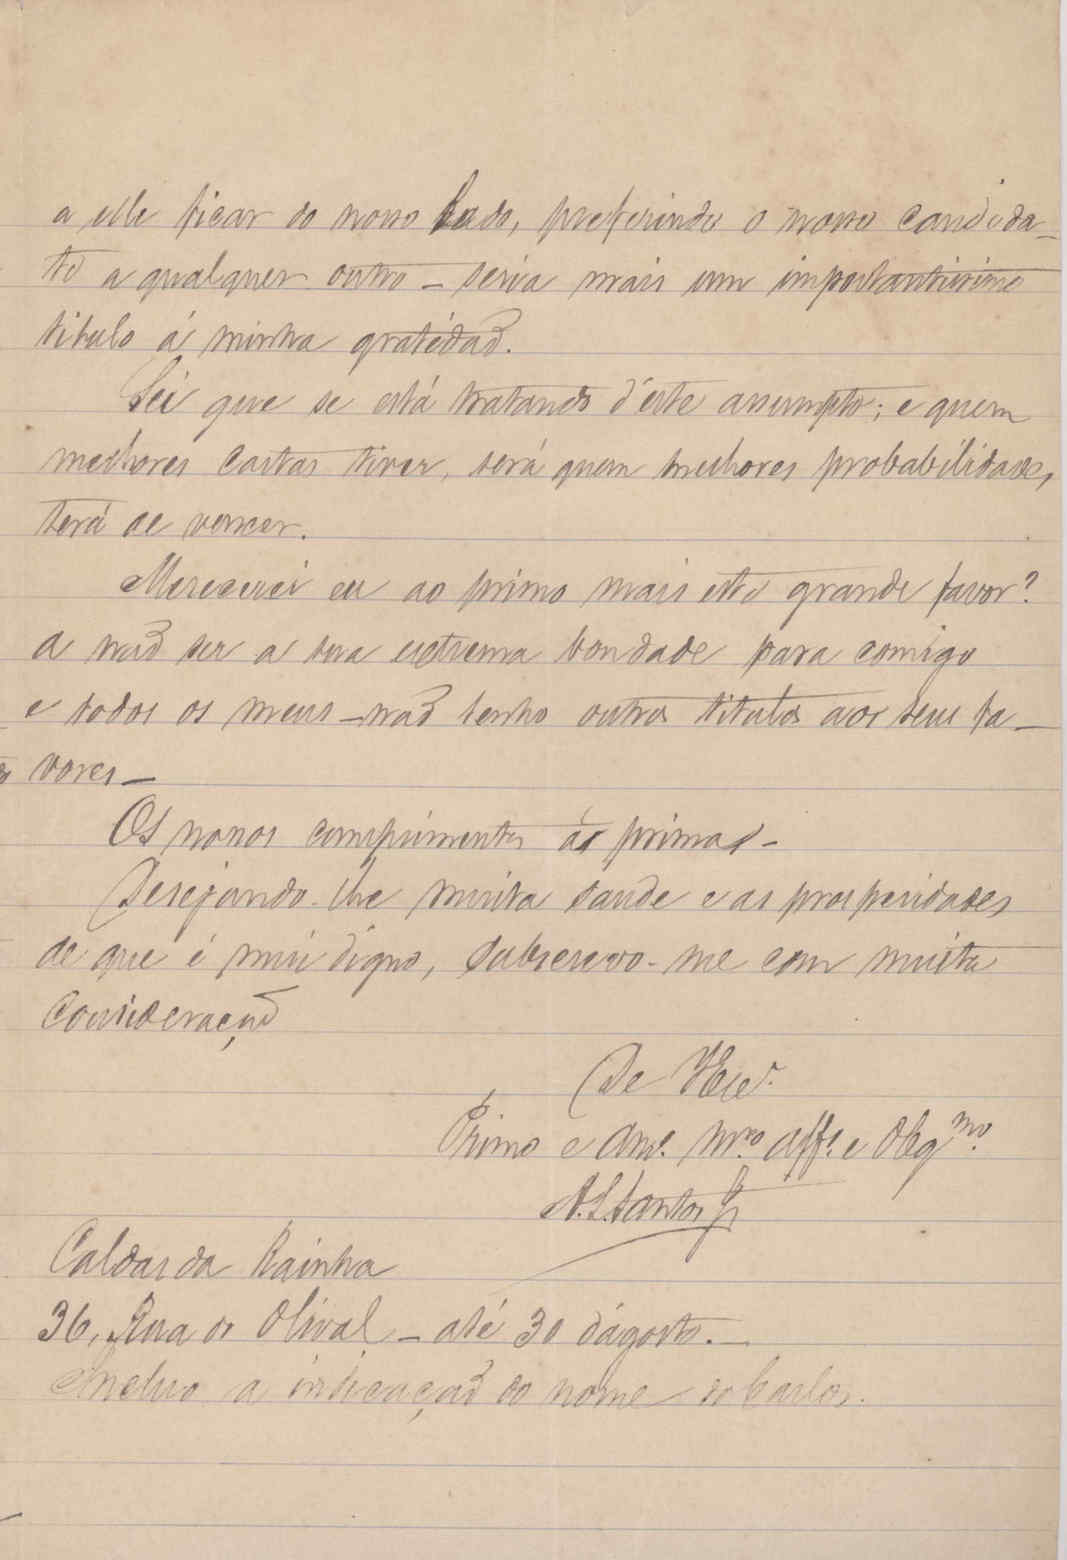 a elle ficar do nosso lado, preferindo o nosso candida-
to a qualquer outro - seria mais um importantissimo
titulo á minha gratidaõ.
Sei que se está tratando d'este assumpto; e quem
melhores cartas tiver, será quem melhores probabilidades,
terá de vencer.
Merecerei eu ao primo mais este grande favor?
a naõ ser a sua extrema bondade para comigo
e todos os meus - naõ tenho outros titulos aos seus fa-
vores -
Os nossos comprimentos ás primas -
Desejando-lhe muita saude e as prosperidades
de que é mui digno, subscrevo-me com muita
consideraçaõ
De
Primo e Amº. Mto affº. e Obgmo.
A. S. Santos Jr
Caldas da Rainha
36, Rua do Olival - até 30 d'agosto. -
Incluo a indicaçaõ do nome do Carlos.